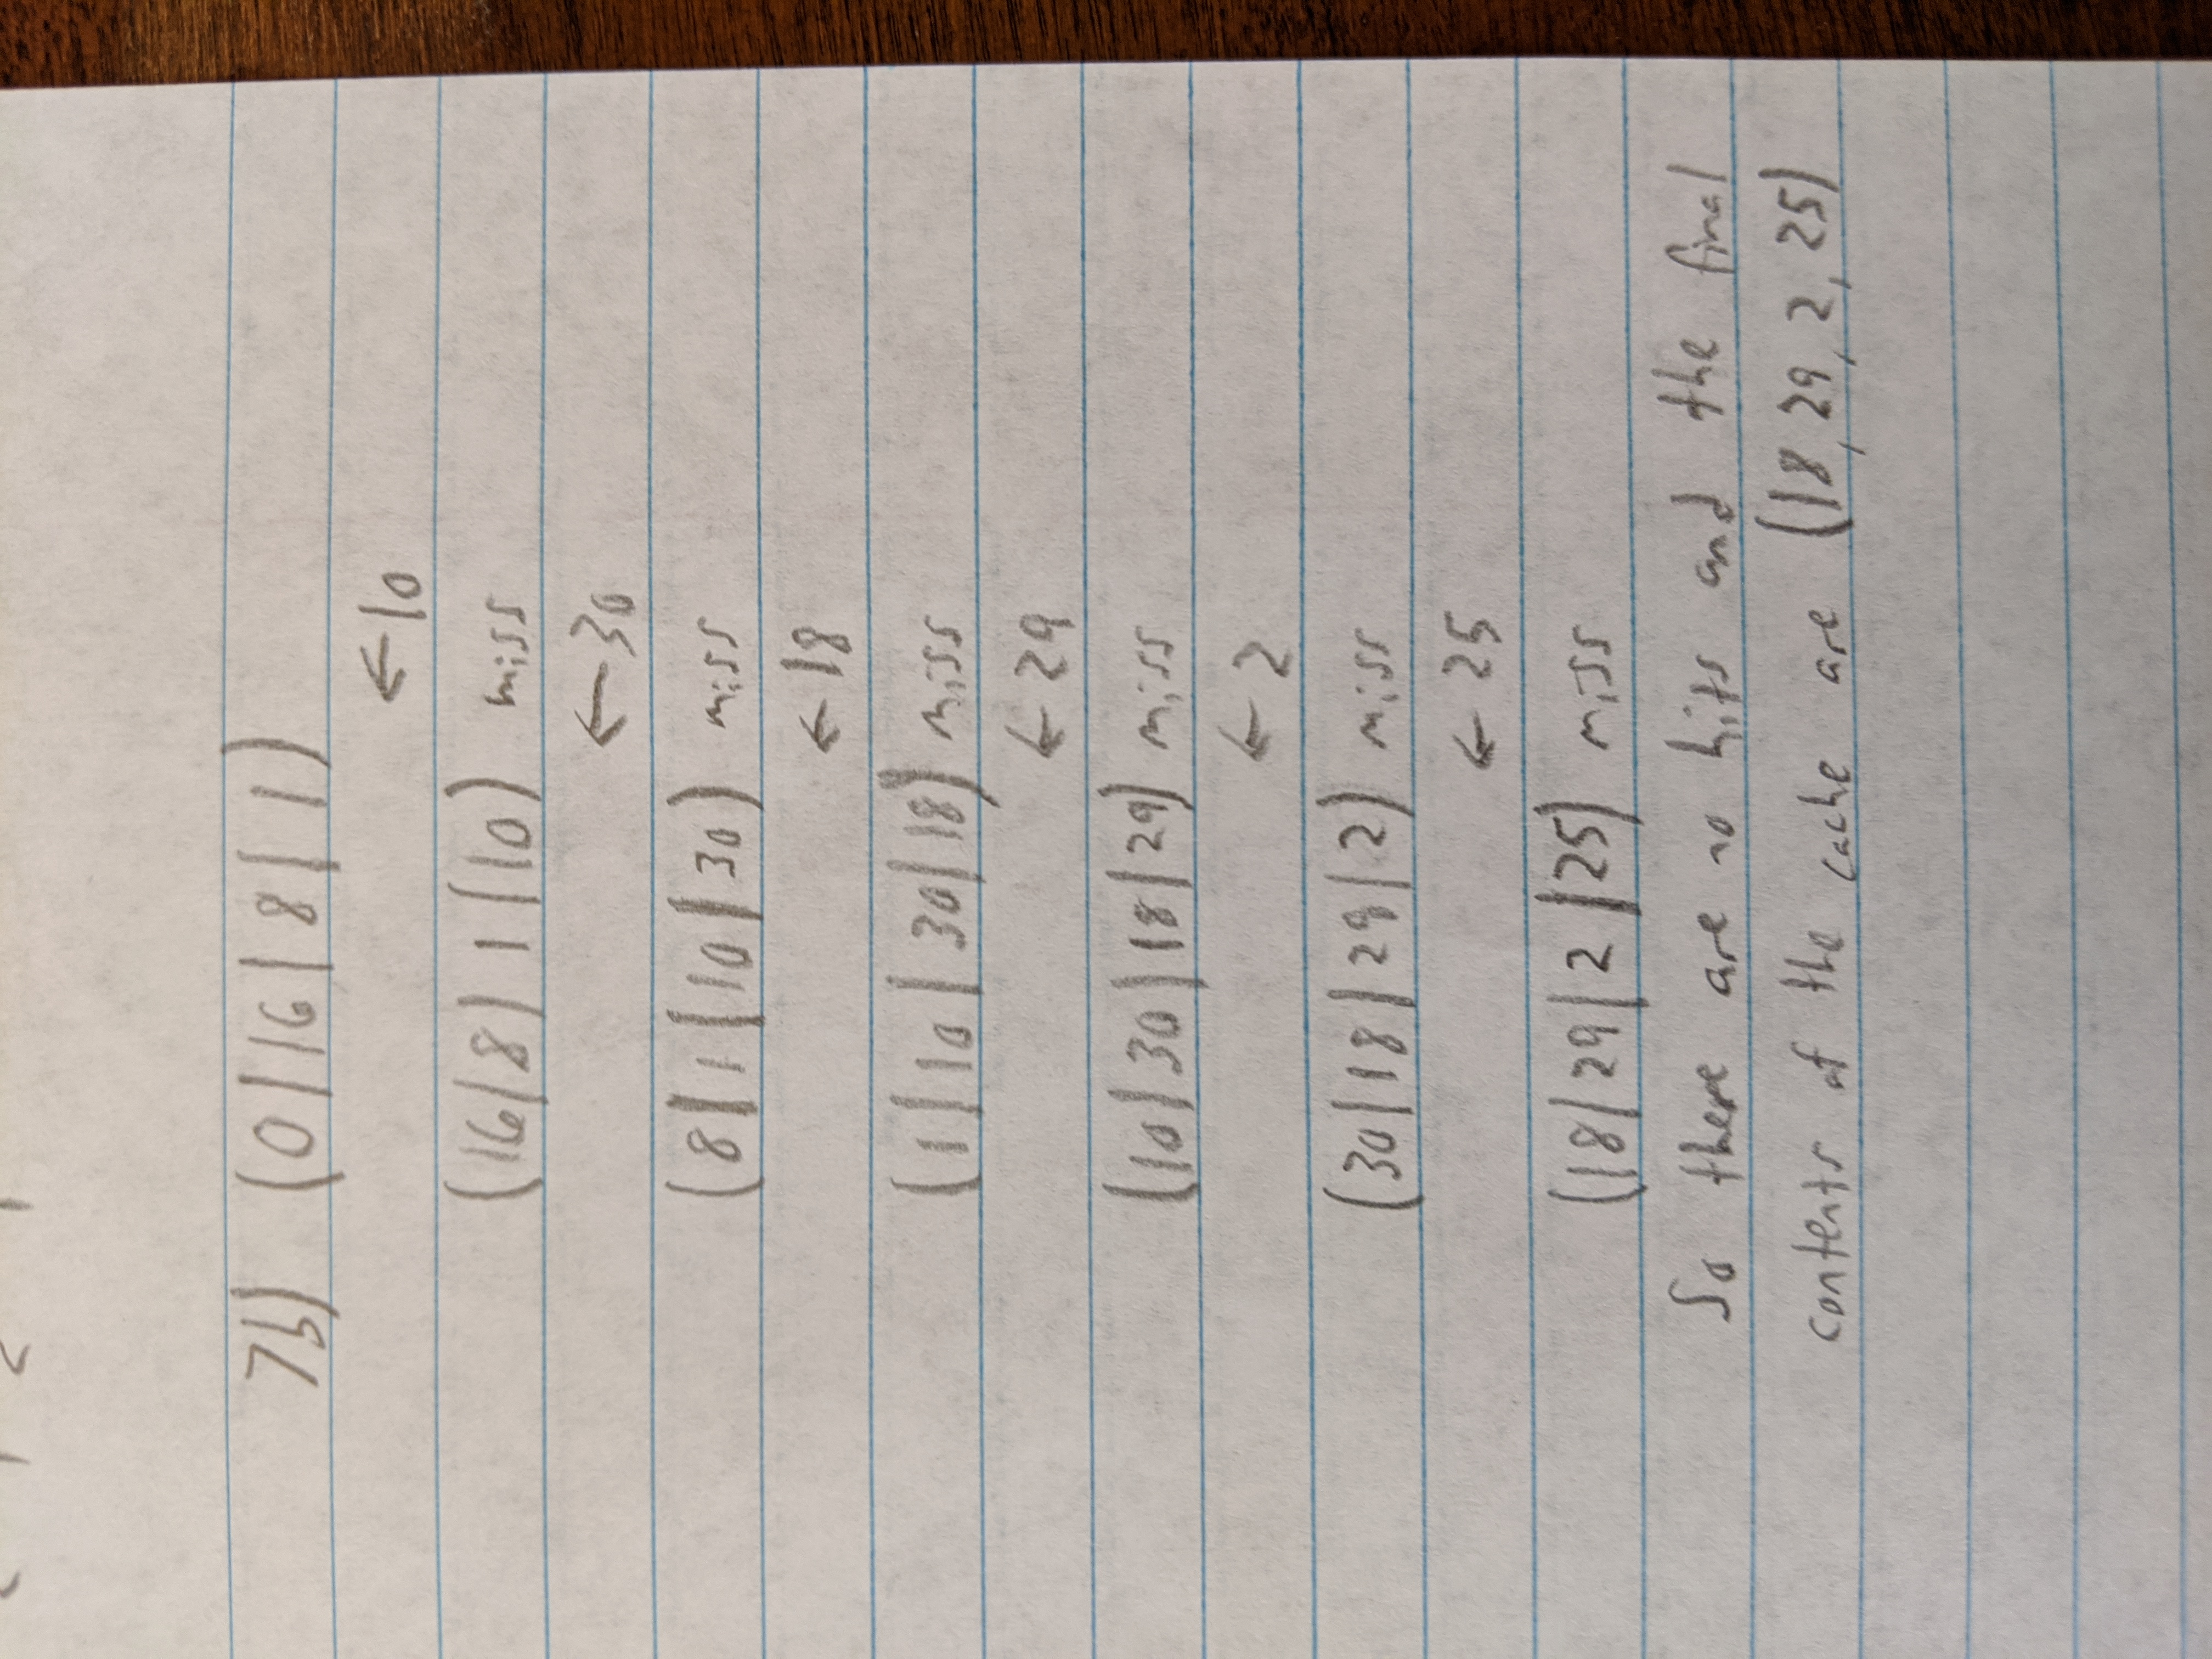 7b) (0|16|8|1)
←10
(16|8) 1 (10) miss
←30
(8|1|10|30) miss
←18
(1|10|30|18) miss
←29
(10|30|18|29) miss
←2
(30|18|29|2) miss
←25
(18|29|2|25) miss
So there are no hits and the final
contents of the cache are (18, 29, 2, 25)